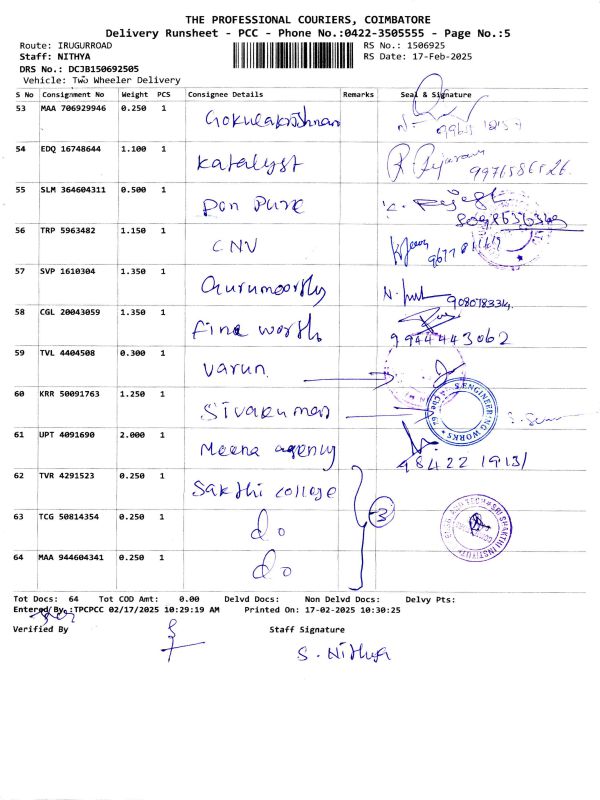 THE PROFESSIONAL COURIERS, COIMBATORE
Delivery Runsheet - PCC - Phone No.:0422-3505555 - Page No.:5
Route: IRUGURROAD RS No.: 1506925
Staff: NITHYA RS Date: 17-Feb-2025
DRS No.: DCJB150692505
Vehicle: Two Wheeler Delivery
S No Consignment No Weight PCS Consignee Details Remarks Seal & Signature
53 MAA 706929946 0.250 1 Gokulakrishnan
54 EDQ 16748644 1.100 1 Katalyst
55 SLM 364604311 0.500 1 Don Pure
56 TRP 5963482 1.150 1 CNV
57 SVP 1610304 1.350 1 Gurumoorthy
58 CGL 20043059 1.350 1 fine worth 9944443062
59 TVL 4404508 0.300 1 Varun
60 KRR 50091763 1.250 1 Sivakumar ENGINEERING WORKS
61 UPT 4091690 2.000 1 Meena agency 98422 19131
62 TVR 4291523 0.250 1 Sakthi college
63 TCG 50814354 0.250 1 do 3
64 MAA 944604341 0.250 1 do
Tot Docs: 64 Tot COD Amt: 0.00 Delvd Docs: Non Delvd Docs: Delvy Pts:
Entered By :TPCPCC 02/17/2025 10:29:19 AM Printed On: 17-02-2025 10:30:25
Verified By Staff Signature
S. Nithya